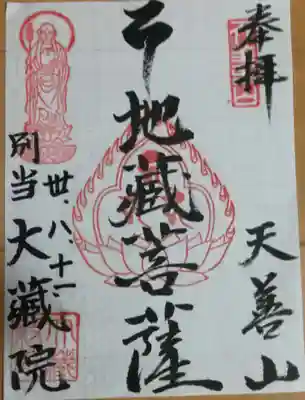 奉拝
天善山
地藏菩薩
廿、八、十一
別当大藏院